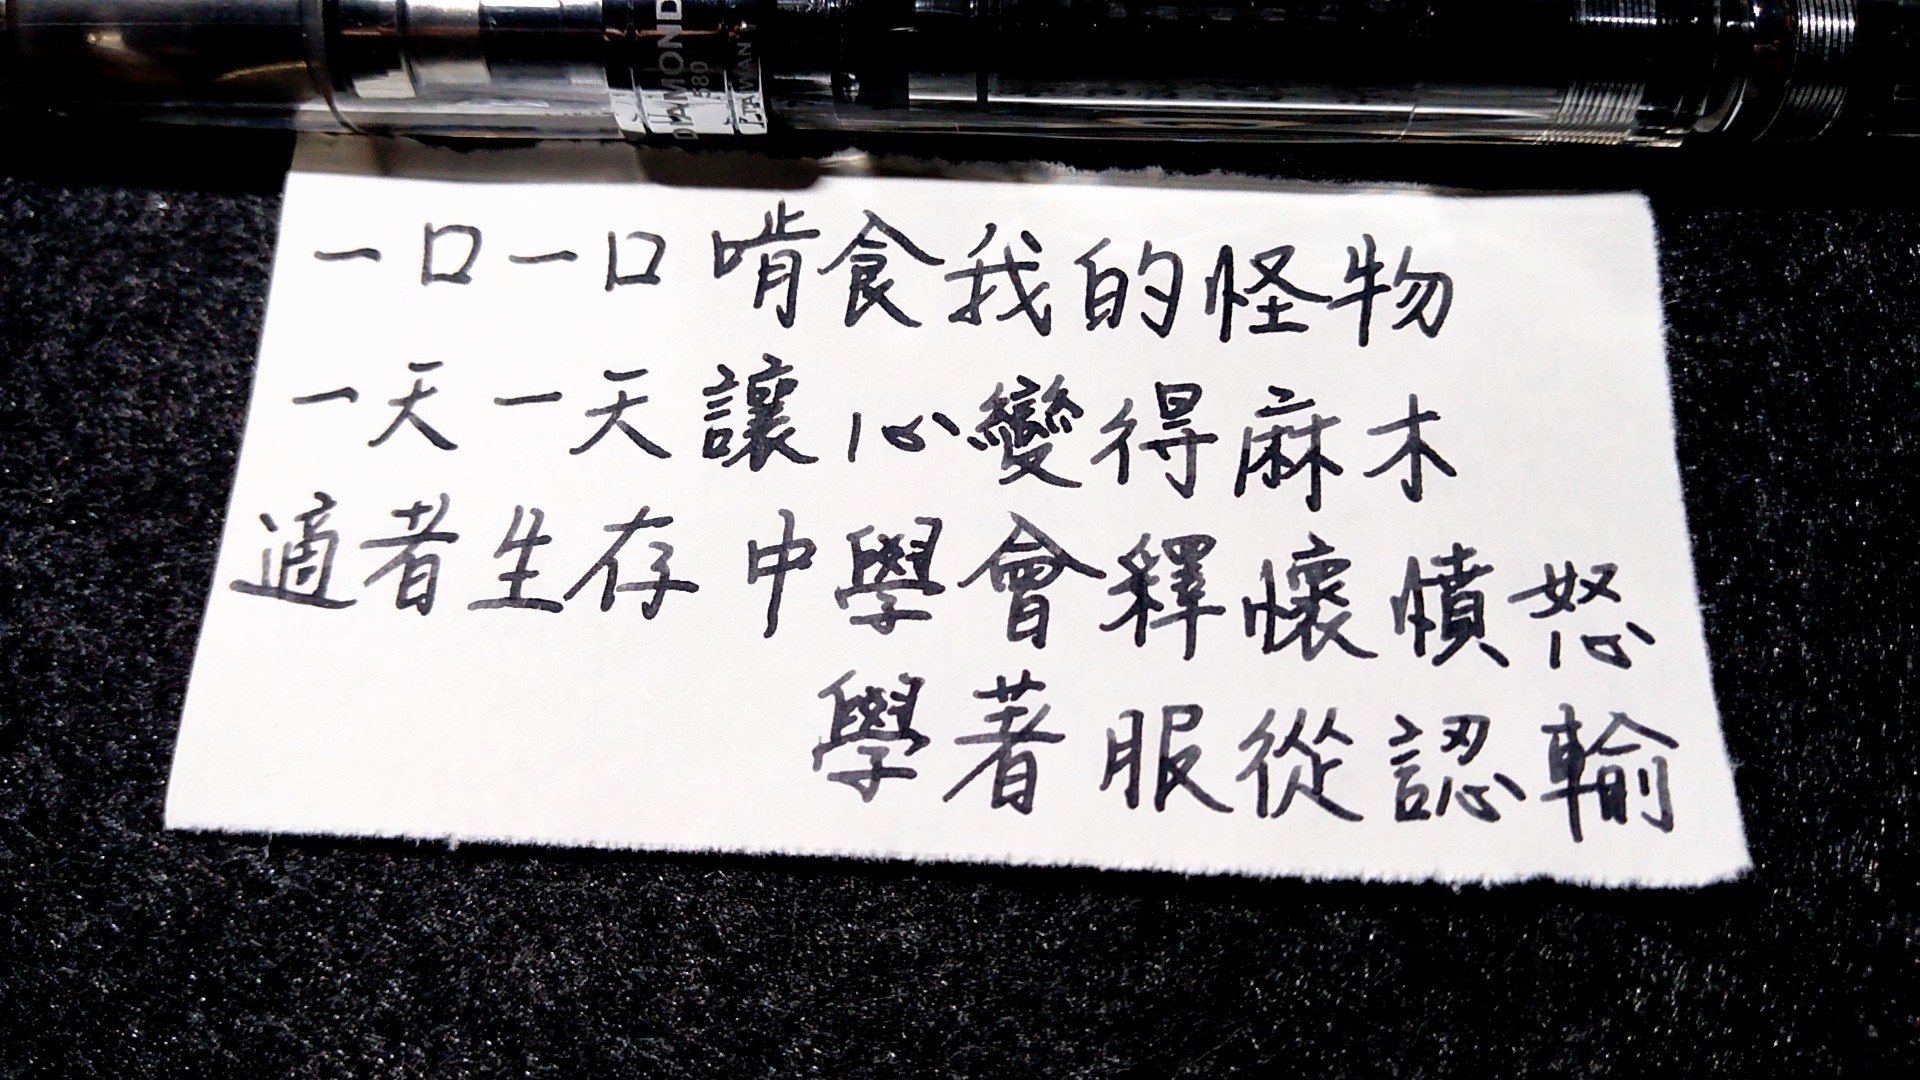 DIAMOND
580
TAIWAN
一口一口啃食我的怪物
一天一天讓心變得麻木
適者生存中學會釋懷憤怒
學著服從認輸